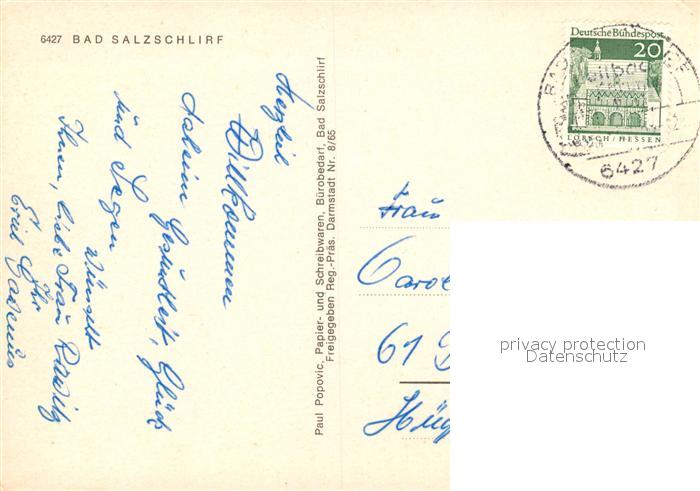 6427 BAD SALZSCHLIRF
Deutsche Bundespost
20
LORSCH / HESSEN
6427
Herzlich
Willkommen
daheim Gesundheit, Glück
und Segen
wünscht
Ihnen, liebe Frau
Ihr
Paul Popovic, Papier- und Schreibwaren, Bürobedarf, Bad Salzschlirf
Freigegeben Reg.-Präs. Darmstadt Nr. 8/65
Frau
Carol
61 D
Hüg
privacy protection
Datenschutz